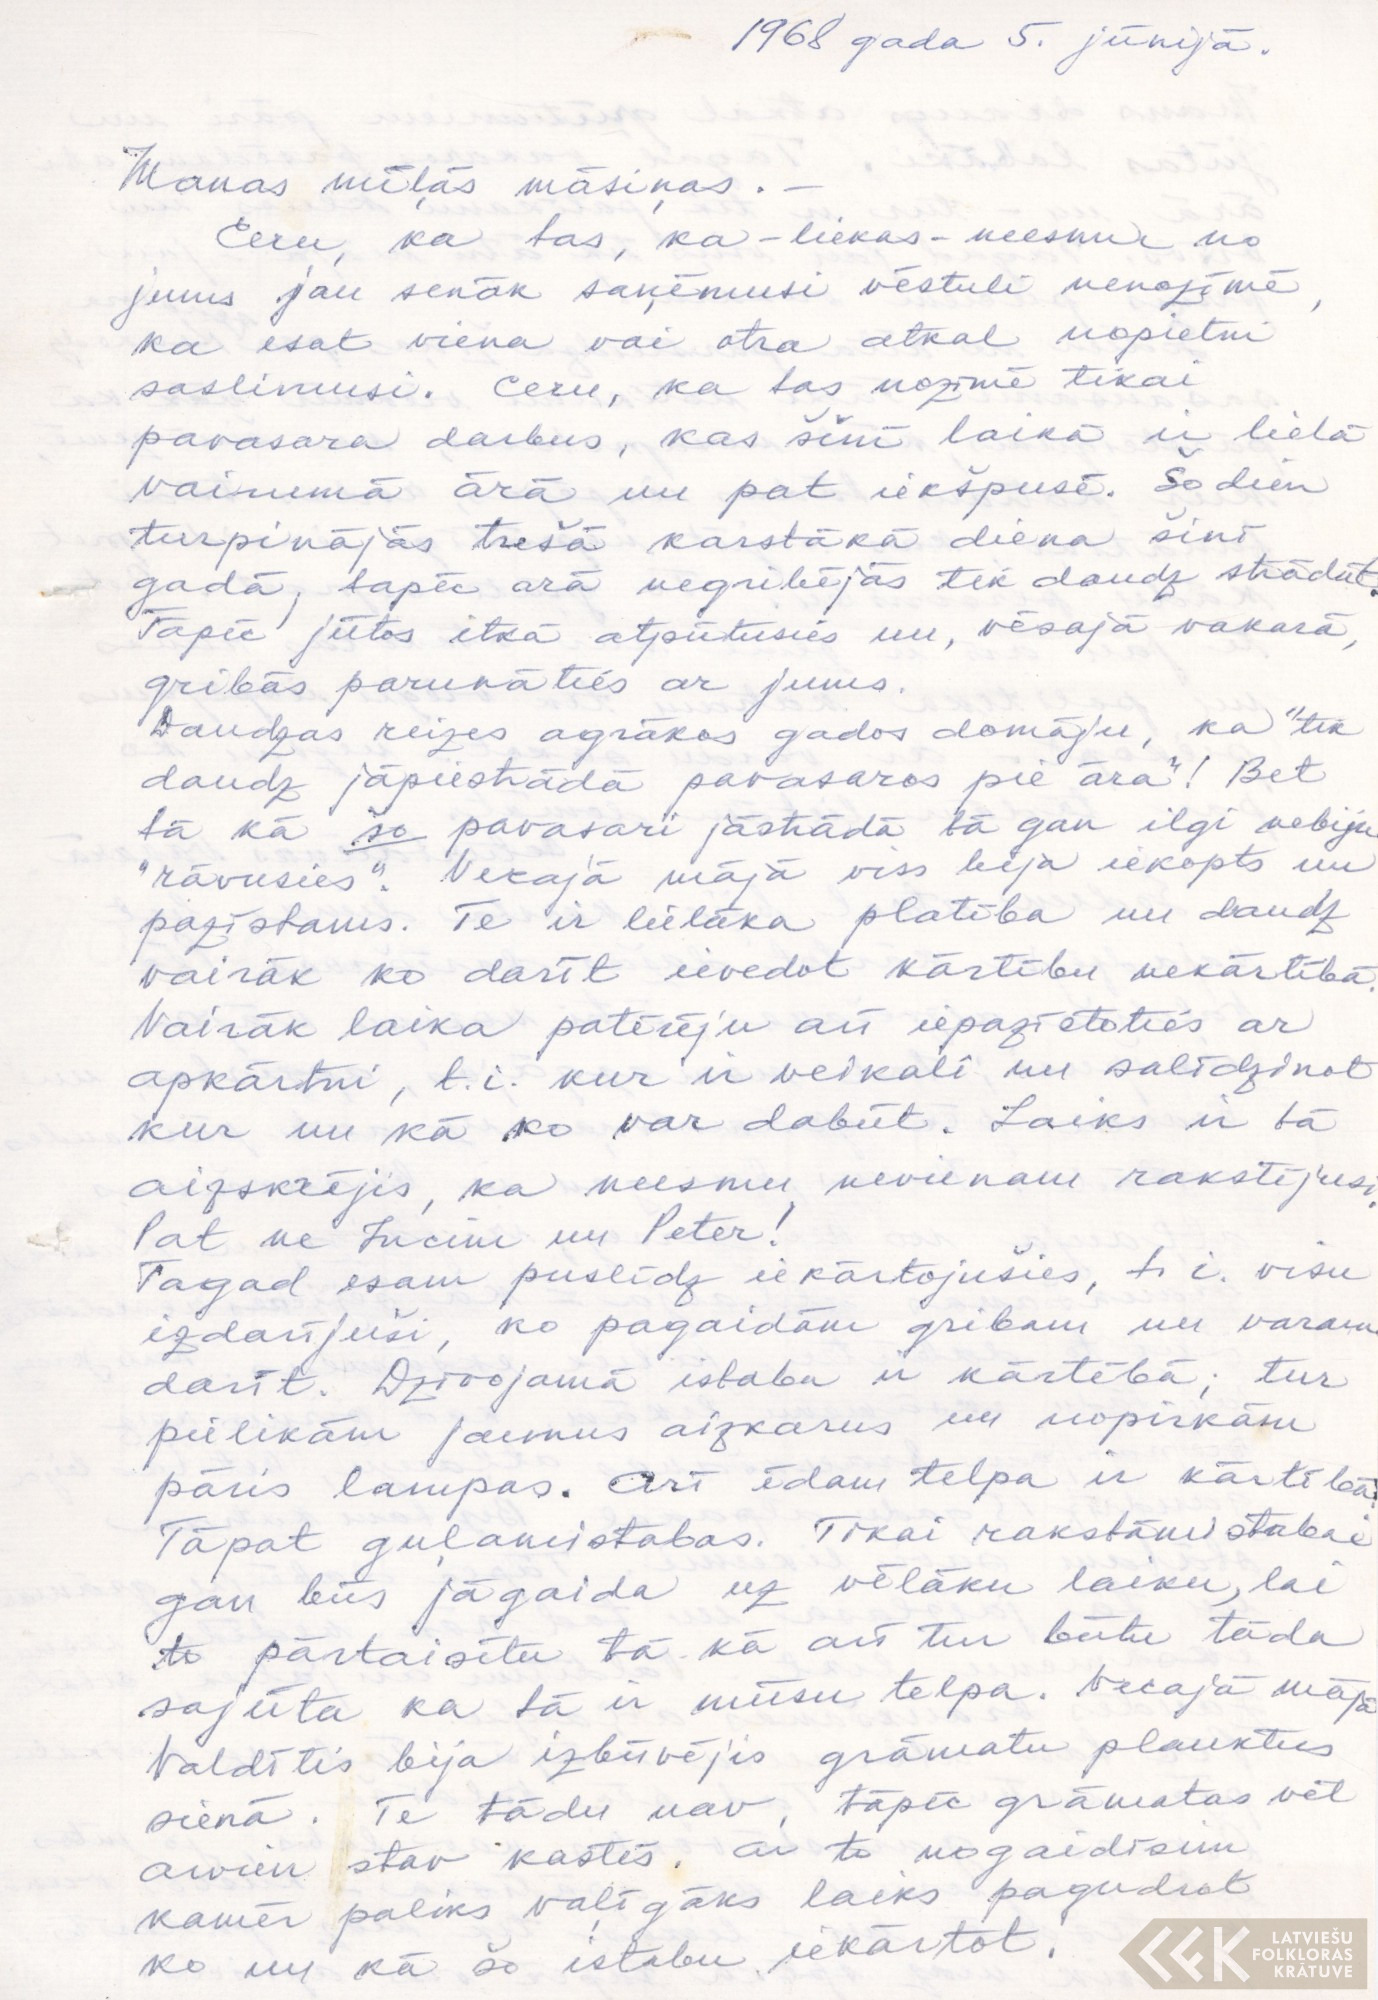 1968 gada 5. jūnijā.
Manas mīļās māsiņas. –
Ceru, ka tas, ka – liekas – neesmu no
jums jau senāk saņēmusi vēstuli nenozīmē,
ka esat viena vai otra atkal nopietni
saslimusi. Ceru, ka tas nozīmē tikai
pavasara darbus, kas šinī laikā ir lielā
vairumā ārā un pat iekšpusē. Šodien
turpinājās trešā karstākā diena šinī
gadā, tapēc arā negribējās tik daudz strādāt.
Tāpēc jūtos itkā atpūtusies un, vēsajā vakarā,
gribās parunāties ar jums.
Daudzas reizes agrākos gados domāju, ka "tik
daudz jāpiestrādā pavasaros pie āra"! Bet
tā kā šo pavasari jāstrādā tā gan ilgi nebiju
"rāvusies". Vecajā mājā viss bija iekopts un
pazīstams. Te ir lielāka platība un daudz
vairāk ko darīt ievedot kārtību nekārtībā.
Vairāk laika patērēju arī iepazīstoties ar
apkārtni, t.i. kur ir veikali un salīdzinot
kur un kā ko var dabūt. Laiks ir tā
aizskrējis, ka neesmu nevienam rakstījusi.
Pat ne Lucim un Peter!
Tagad esam puslīdz iekārtojušies, t. i. visu
izdarījuši, ko pagaidām gribam un varam
darīt. Dzīvojamā istaba ir kārtībā; tur
pielikām jaunus aizkarus un nopirkām
pāris lampas. Arī ēdamtelpa ir kārtībā.
Tāpat guļamistabas. Tikai rakstāmistabai
gan būs jāgaida uz vēlāku laiku, lai
to pārtaisītu tā kā arī tur būtu tāda
sajūta ka tā ir mūsu telpa. Vecajā mājā
Valdītis bija izbūvējis grāmatu plauktus
sienā. Te tādu nav, tāpēc grāmatas vēl
arvien stāv kastēs. Ar to nogaidīsim
kamēr paliks vaļīgāks laiks pagudrot
ko un kā šo istabu iekārtot.
LATVIEŠU
FOLKLORAS
KRĀTUVE